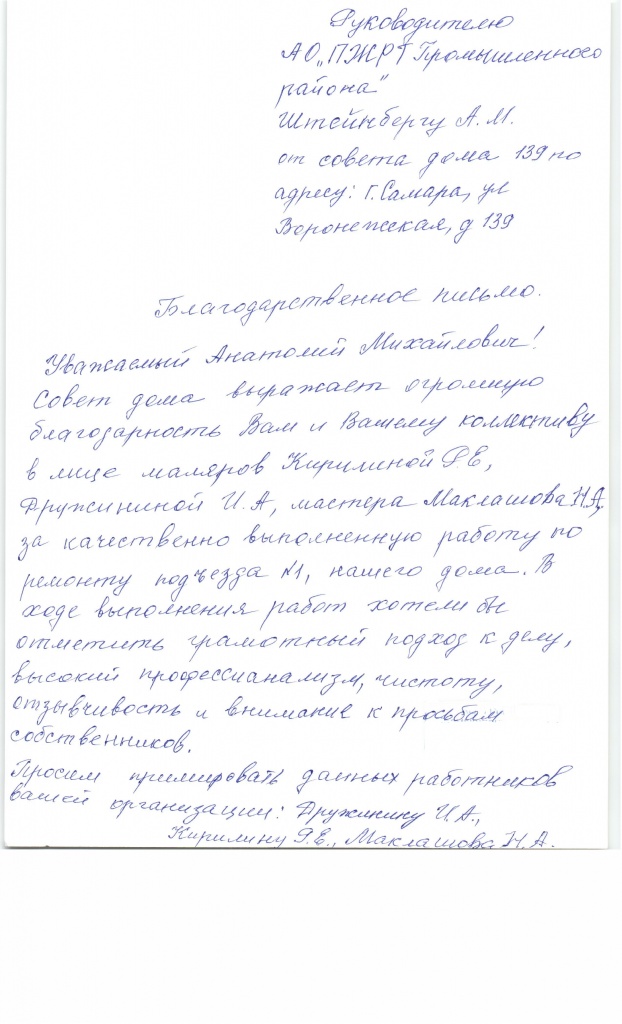 Руководителю
АО „ПЖРТ Промышленного
района"
Штейнбергу А.М.
от совета дома 139 по
адресу: г. Самара, ул
Воронежская, д 139
Благодарственное письмо.
Уважаемый Анатолий Михайлович!
Совет дома выражает огромную
благодарность Вам и Вашему коллективу
в лице маляров Кирилиной Р.Е,
Дружининой И.А, мастера Маклашова Н.А,
за качественно выполненную работу по
ремонту подъезда №1, нашего дома. В
ходе выполнения работ хотели бы
отметить грамотный подход к делу,
высокий профессианализм, чистоту,
отзывчивость и внимание к просьбам
собственников.
Просим примировать данных работников
вашей организации: Дружинину И.А.,
Кирилину Р.Е., Маклашова Н.А.